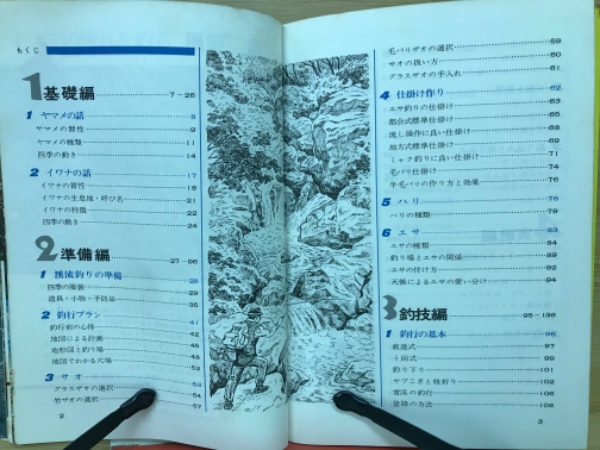 もくじ
1 基礎編 7-26
1 ヤマメの話 8
ヤマメの習性 9
ヤマメの種類 11
四季の動き 14
2 イワナの話 17
イワナの習性 18
イワナの生息地・呼び名 21
イワナの特徴 22
四季の動き 24
2 準備編 27-96
1 渓流釣りの準備 28
四季の服装
道具・小物・予防品 35
2 釣行プラン 41
釣行前の心得
地図による計画
地形図と釣り場 48
地図でわかる穴場 52
3 サオ 53
グラスザオの選択 54
竹ザオの選択 57
2
毛バリザオの選択 59
サオの扱い方 60
グラスザオの手入れ 61
4 仕掛け作り 62
エサ釣りの仕掛け 63
都会式標準仕掛け 65
流し操作に良い仕掛け 68
地方式標準仕掛け 69
ミャク釣りに良い仕掛け 71
毛バリ仕掛け 74
羊毛バリの作り方と効果 76
5 ハリ 78
ハリの種類 79
6 エサ 83
エサの種類 84
釣り場とエサの関係 89
エサの付け方 92
天候によるエサの使い分け 94
3 釣技編 95-136
1 釣行の基本 96
直進式 97
う回式 99
釣り下り 101
ヤブこぎと枝折り 102
雪渓の釣行 106
登降の方法 108
3